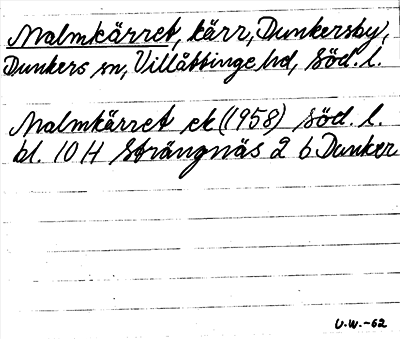 Malmkärret, kärr, Dunkersby,
Dunkers sn, Villåttinge hd, Söd. l.
Malmkärret ek (1958) Söd. l.
bl. 10 H Strängnäs 2 b Dunker
U.W.-62